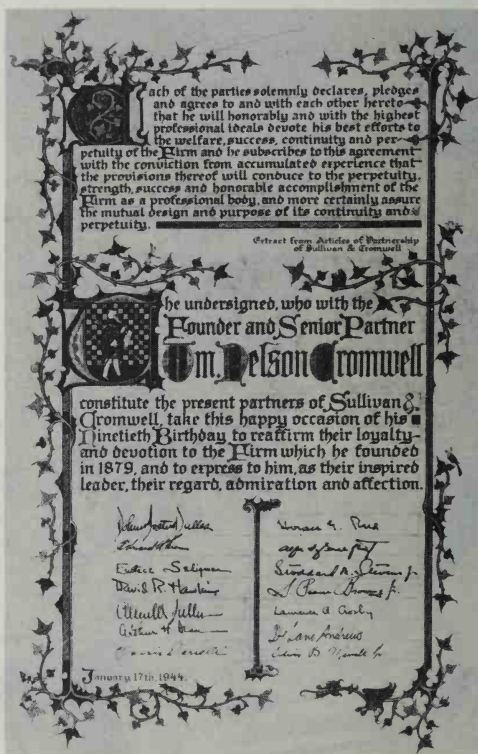 Each of the parties solemnly declares, pledges
and agrees to and with each other hereto
that he will honorably and with the highest
professional ideals devote his best efforts to
the welfare, success, continuity and per-
petuity of the Firm and he subscribes to this agreement
with the conviction from accumulated experience that
the provisions thereof will conduce to the perpetuity,
strength, success and honorable accomplishment of the
Firm as a professional body, and more certainly assure
the mutual design and purpose of its continuity and
perpetuity.
Extract from Articles of Partnership
of Sullivan & Cromwell
The undersigned, who with the
Founder and Senior Partner
Wm. Nelson Cromwell
constitute the present partners of Sullivan &
Cromwell, take this happy occasion of his
Ninetieth Birthday to reaffirm their loyalty
and devotion to the Firm which he founded
in 1879, and to express to him, as their inspired
leader, their regard, admiration and affection.
John Foster Dulles
Eustace Seligman
David R. Hawkins
Allen W. Dulles
Arthur H. Dean
Stoddard M. Stevens Jr.
Laurence A. Crosby
DeLano Andrews
January 17th, 1944.